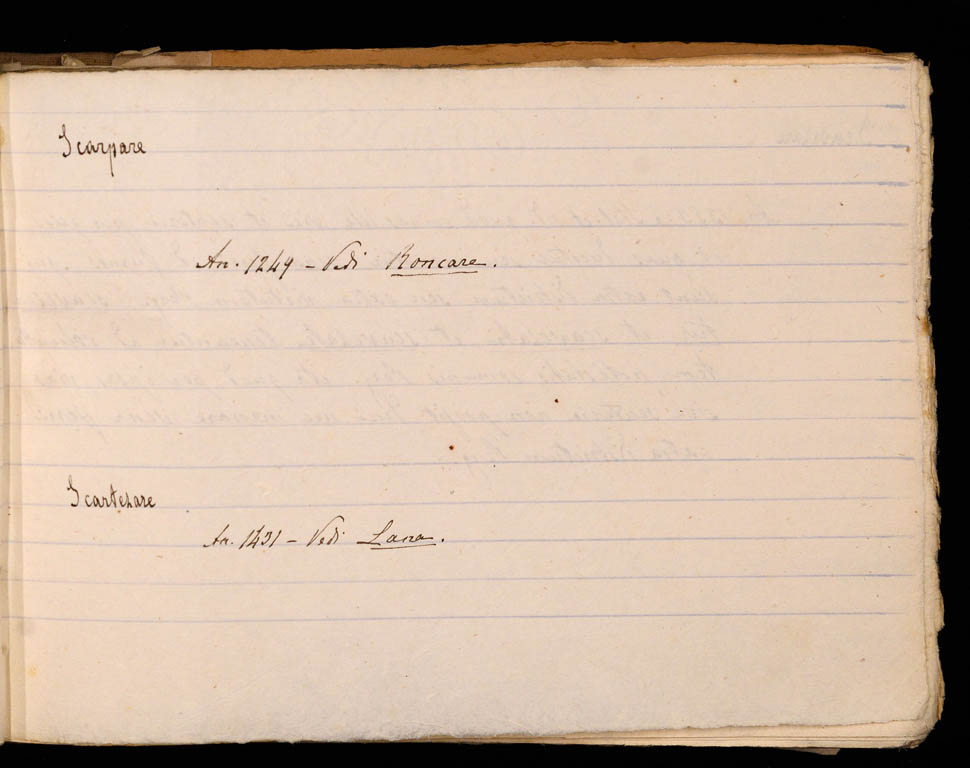 Scarpare
An. 1249 - Vedi Roncare.
Scartezare
An. 1431 - Vedi Lana.